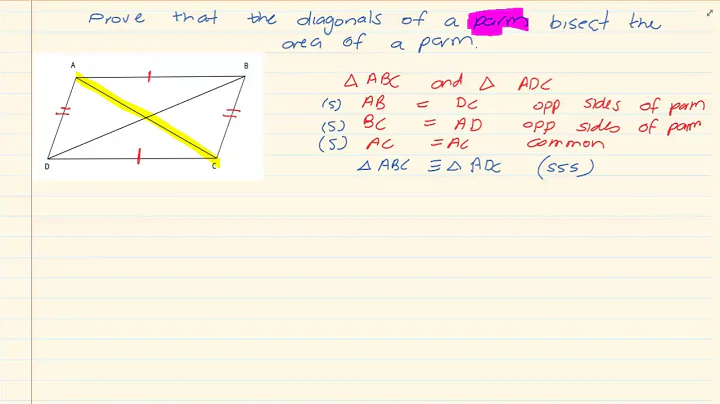 Prove that the diagonals of a parm bisect the
area of a parm.
A B
D C
△ ABC and △ ADC
(S) AB = DC opp sides of parm
(S) BC = AD opp sides of parm
(S) AC = AC common
△ ABC ≡ △ ADC (SSS)